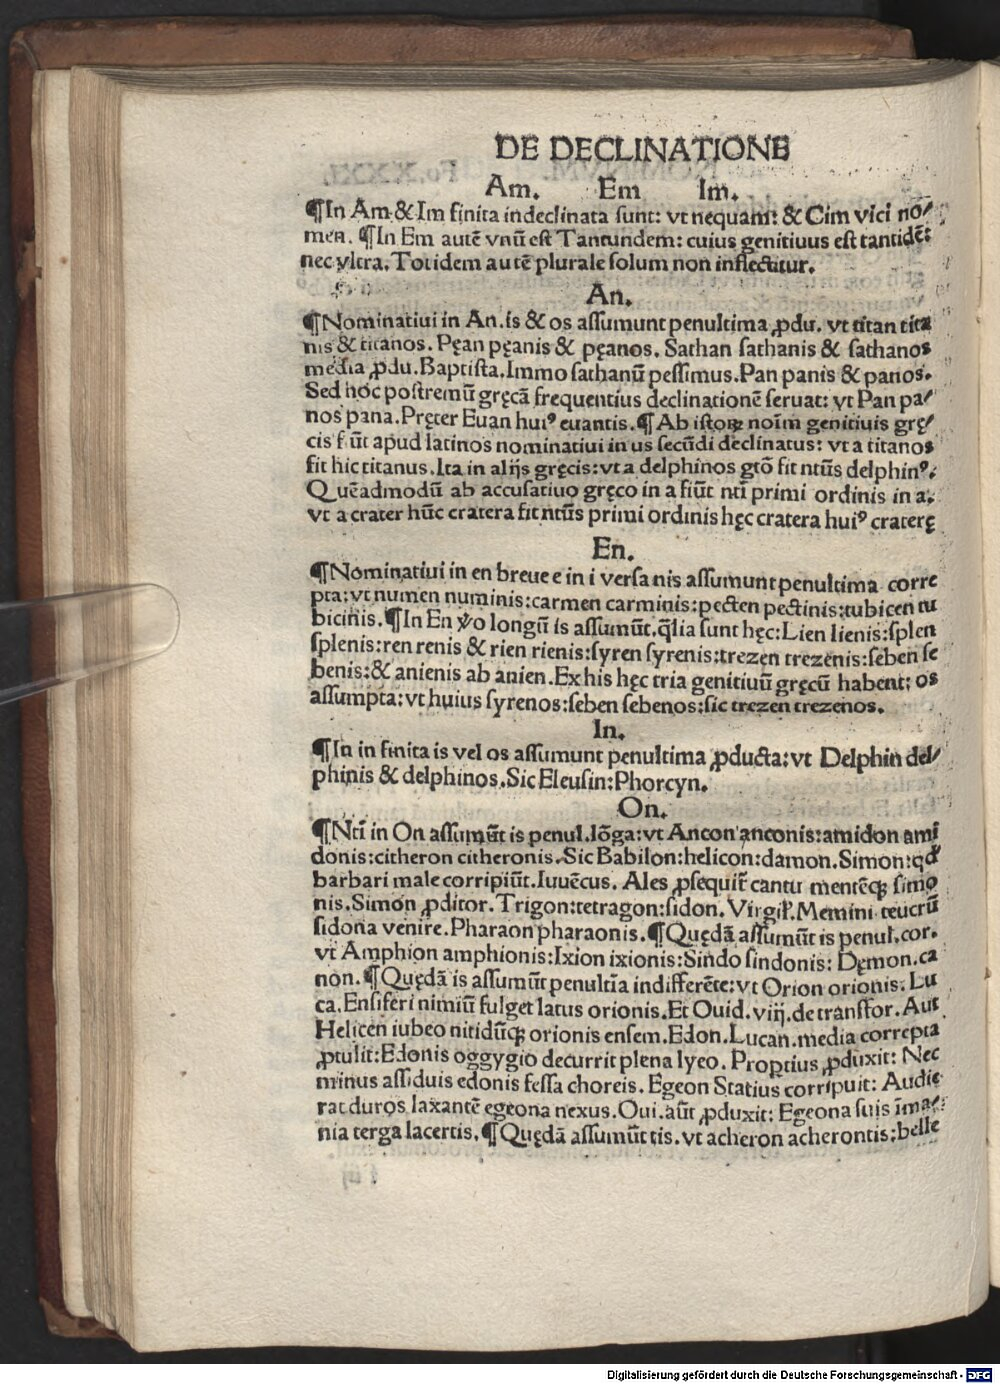 DE DECLINATIONE
Am. Em Im.
¶In Am & Im finita indeclinata sunt: vt nequam: & Cim vici no/
men. ¶In Em autē vnū est Tantundem: cuius genitiuus est tantidē:
nec vltra. Totidem autē plurale solum non inflectitur.
An.
¶Nominatiui in An. is & os assumunt penultima ꝓdu. vt titan tita
nis & titanos. Pęan pęanis & pęanos. Sathan sathanis & sathanos
media ꝓdu. Baptista. Immo sathanū pessimus. Pan panis & panos.
Sed hoc postremū gręcā frequentius declinationē seruat: vt Pan pa/
nos pana. Pręter Euan huiꝰ euantis. ¶Ab istoꝝ noīm genitiuis grę/
cis fiūt apud latinos nominatiui in us secūdi declinatus: vt a titanos
fit hic titanus. Ita in alijs gręcis: vt a delphinos gtō fit ntūs delphinꝰ:
Quēadmodū ab accusatiuo gręco in a fiūt ntī primi ordinis in a.
vt a crater hūc cratera fit ntūs primi ordinis hęc cratera huiꝰ craterę
En.
¶Nominatiui in en breue e in i versa nis assumunt penultima corre
pta: vt numen numinis: carmen carminis: pecten pectinis: tubicen tu
bicinis. ¶In En ꝟo longū is assumūt. q̄lia sunt hęc: Lien lienis: splen
splenis: ren renis & rien rienis: syren syrenis: trezen trezenis: seben se
benis: & anienis ab anien. Ex his hęc tria genitiuū gręcū habent: os
assumpta: vt huius syrenos: seben sebenos: sic trezen trezenos.
In.
¶In in finita is vel os assumunt penultima ꝓducta: vt Delphin del/
phinis & delphinos. Sic Eleusin: Phorcyn.
On.
¶Ntī in On assumūt is penul. lōga: vt Ancon anconis: amidon ami
donis: citheron citheronis. Sic Babilon: helicon: damon. Simon: qđ
barbari male corripiūt. Iuuēcus. Ales ꝓsequit̃ cantu mentēqꝫ simo
nis. Simon ꝓditor. Trigon: tetragon: sidon. Virgil̕. Memini teucrū
sidona venire. Pharaon pharaonis. ¶Quędā assumūt is penul. cor.
vt Amphion amphionis: Ixion ixionis: Sindo sindonis: Dęmon. ca
non. ¶Quędā is assumūt penultīa indifferēte: vt Orion orionis. Lu
ca. Ensiferi nimiū fulget latus orionis. Et Ouid. viij. de transfor. Aut
Helicen iubeo nitidūqꝫ orionis ensem. Edon. Lucan. media correpta
ꝓtulit: Edonis oggygio decurrit plena lyeo. Proꝑtius ꝓduxit: Nec
minus assiduis edonis fessa choreis. Egeon Statius corripuit: Audie
rat duros laxantē egeona nexus. Oui. aūt ꝓduxit: Egeona suis īma/
nia terga lacertis. ¶Quędā assumūt tis. vt acheron acherontis: belle
Digitalisierung gefördert durch die Deutsche Forschungsgemeinschaft - DFG